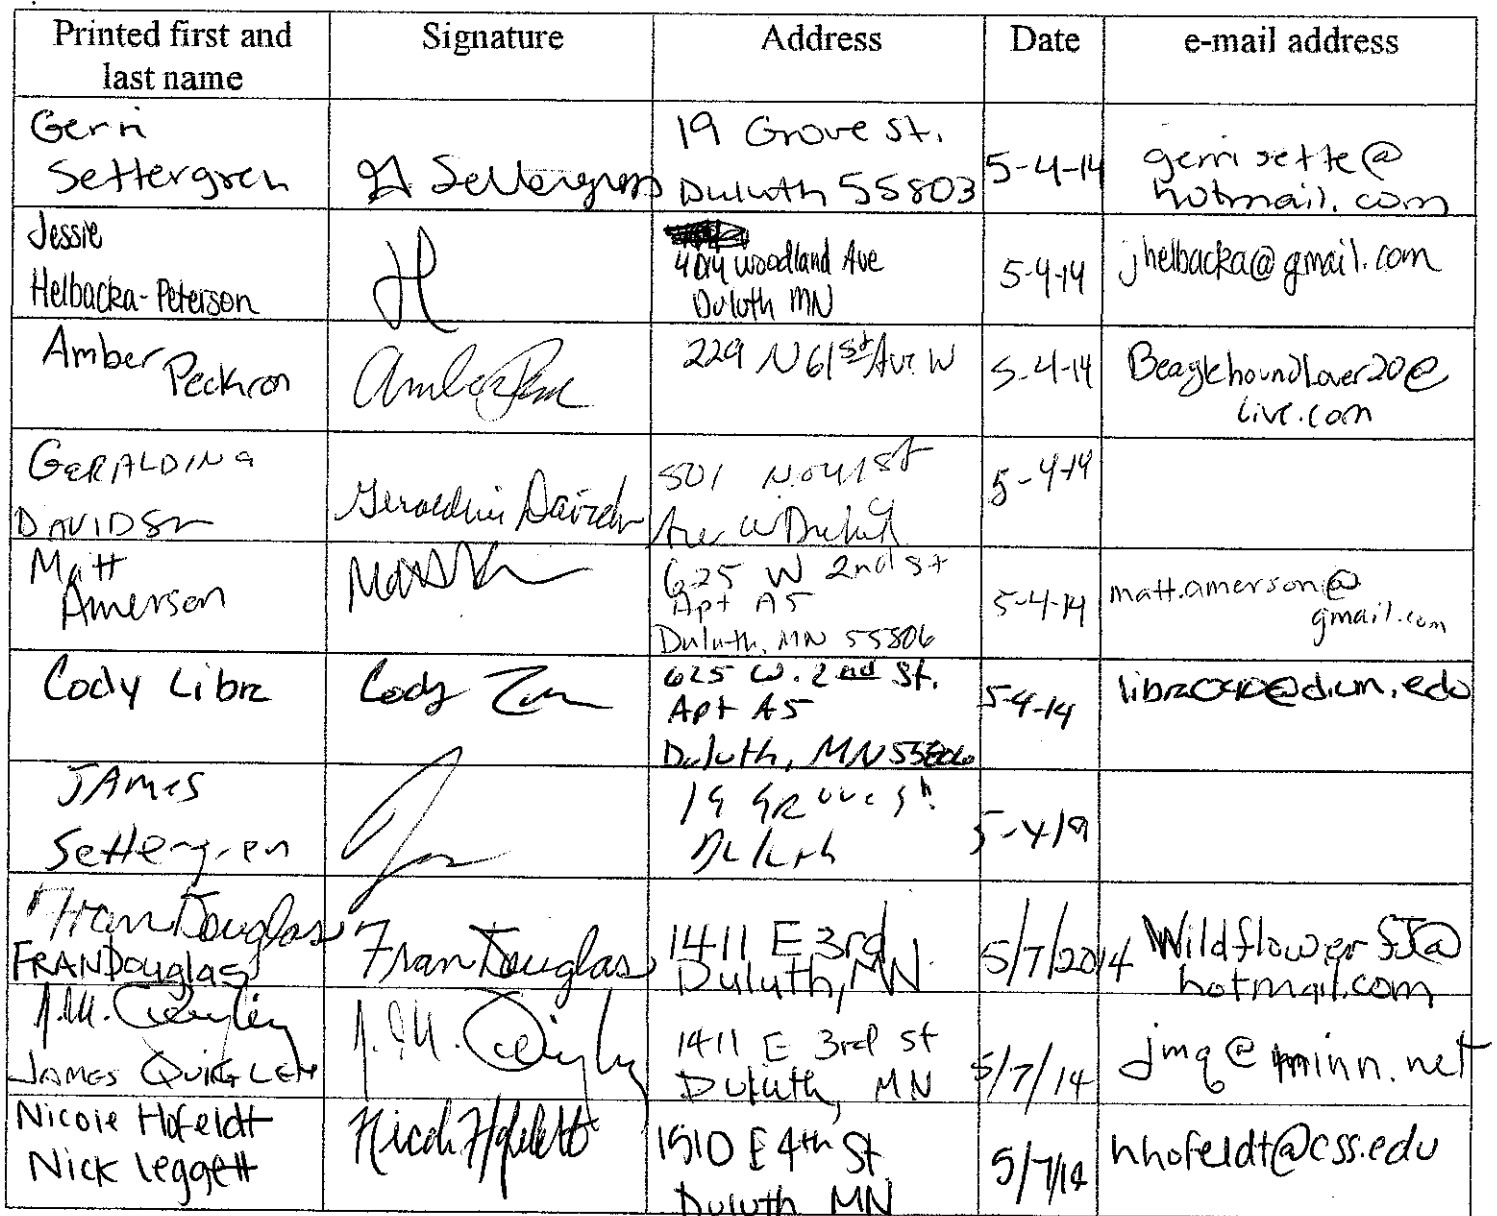 Printed first and
last name
Signature
Address
Date
e-mail address
Gerri
Settergren
Settergren
19 Grove St.
Duluth 55803
5-4-14
gerrisette@
hotmail.com
Jessie
Helbacka-Peterson
Woodland Ave
Duluth MN
5-4-14
jhelbacka@gmail.com
Amber
Peckron
Amber
229 N 61st Ave W
5-4-14
BeaglehoundLover20@
live.com
GERALDINE
DAVIDSON
Geraldine Davidson
501 No 41st
Ave W Duluth
5-4-14
Matt
Amerson
625 W 2nd st
Apt A5
Duluth, MN 55806
5-4-14
matt.amerson@
gmail.com
Cody Libra
Cody
625 W. 2nd St.
Apt A5
Duluth, MN 55806
5-4-14
JAMES
Settergren
19 GROVE St.
Duluth
Fran Douglas
FRAN Douglas
Fran Douglas
1411 E 3rd
Duluth, MN
5/7/2014
hotmail.com
J.M. Quigley
JAMES QUIGLEY
J.M. Quigley
1411 E 3rd St
Duluth, MN
5/7/14
jmq@minn.net
Nicole Hofeldt
Nick Leggett
Nicole Hofeldt
1510 E 4th St
Duluth MN
5/7/14
nhofeldt@css.edu